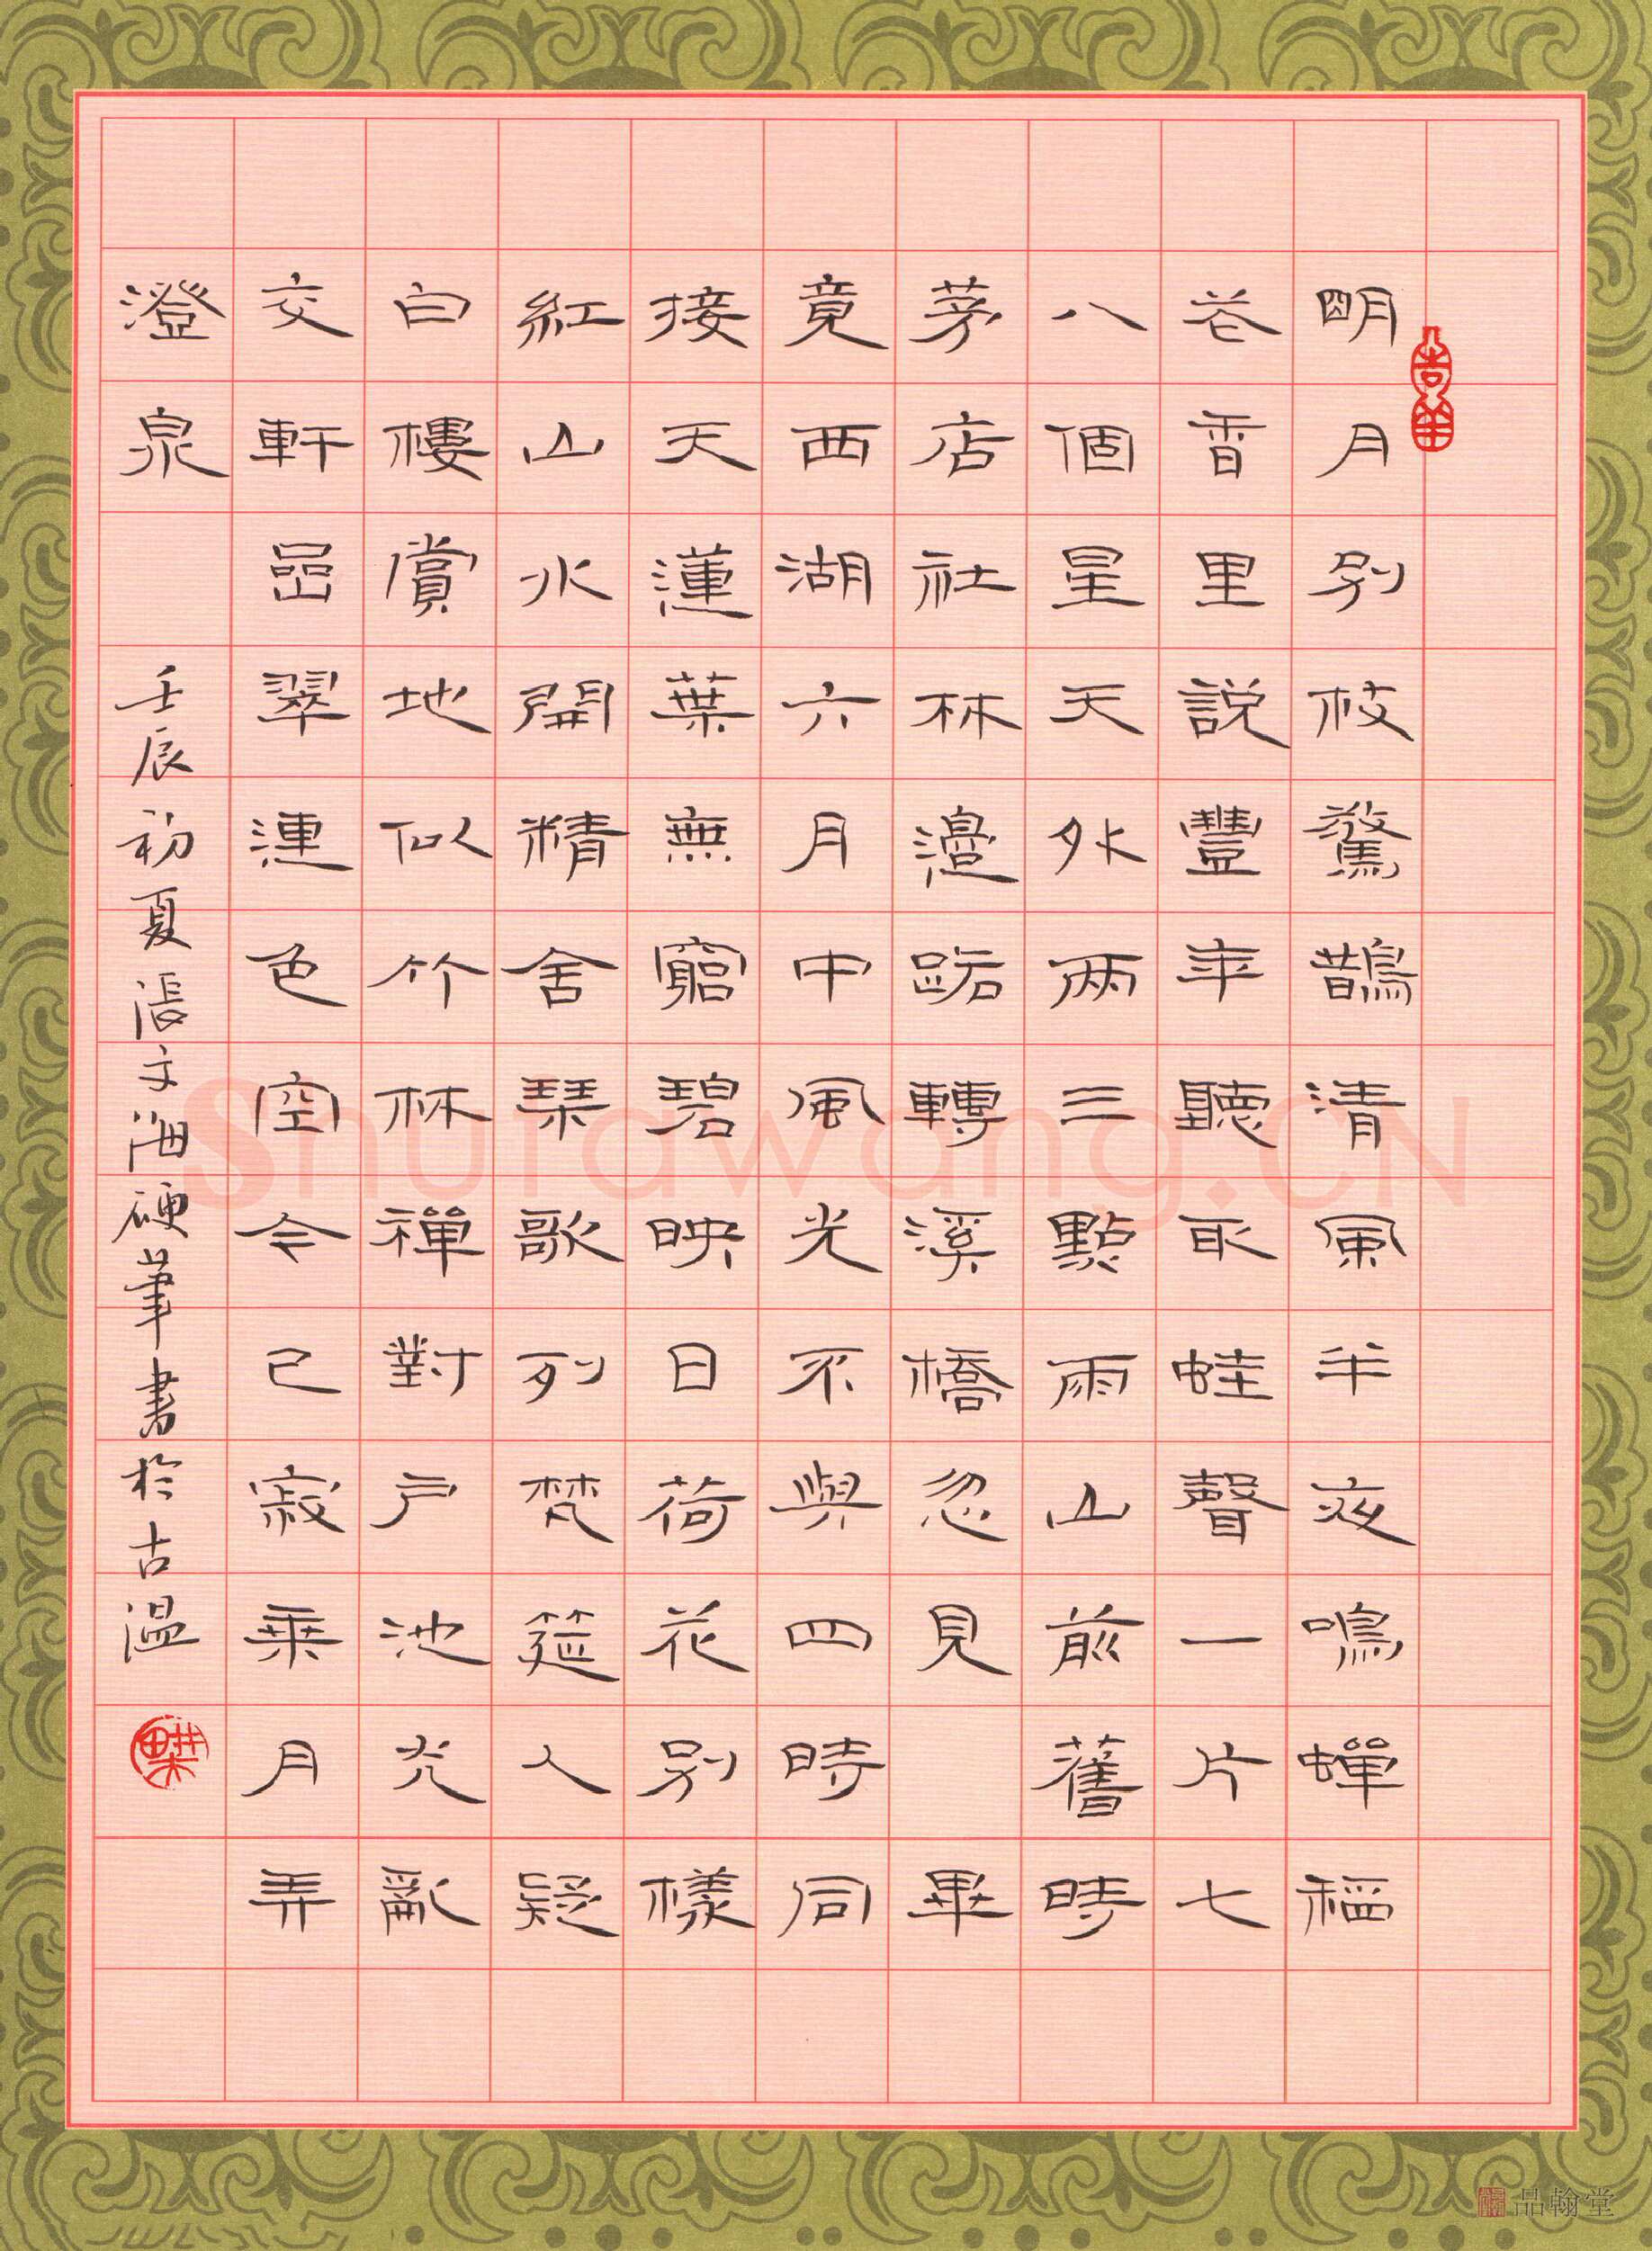 明月別枝驚鵲清風半夜鳴蟬稻
花香里説豐年聽取蛙聲一片七
八個星天外兩三點雨山前舊時
茅店社林邊路轉溪橋忽見 畢
竟西湖六月中風光不與四時同
接天蓮葉無窮碧映日荷花別樣
紅山水開精舍琴歌列梵筵人疑
白樓賞地似竹林禪對戶池光亂
交軒嵒翠連色空今已寂乘月弄
澄泉 壬辰初夏張文海硬筆書於古溫
吉羊
Shufawang.CN
品翰堂